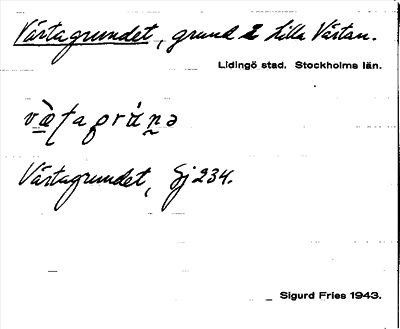 Värtagrundet, grund i Lilla Värtan.
Lidingö stad. Stockholms län.
Värtagrundet, Sj 234.
Sigurd Fries 1943.